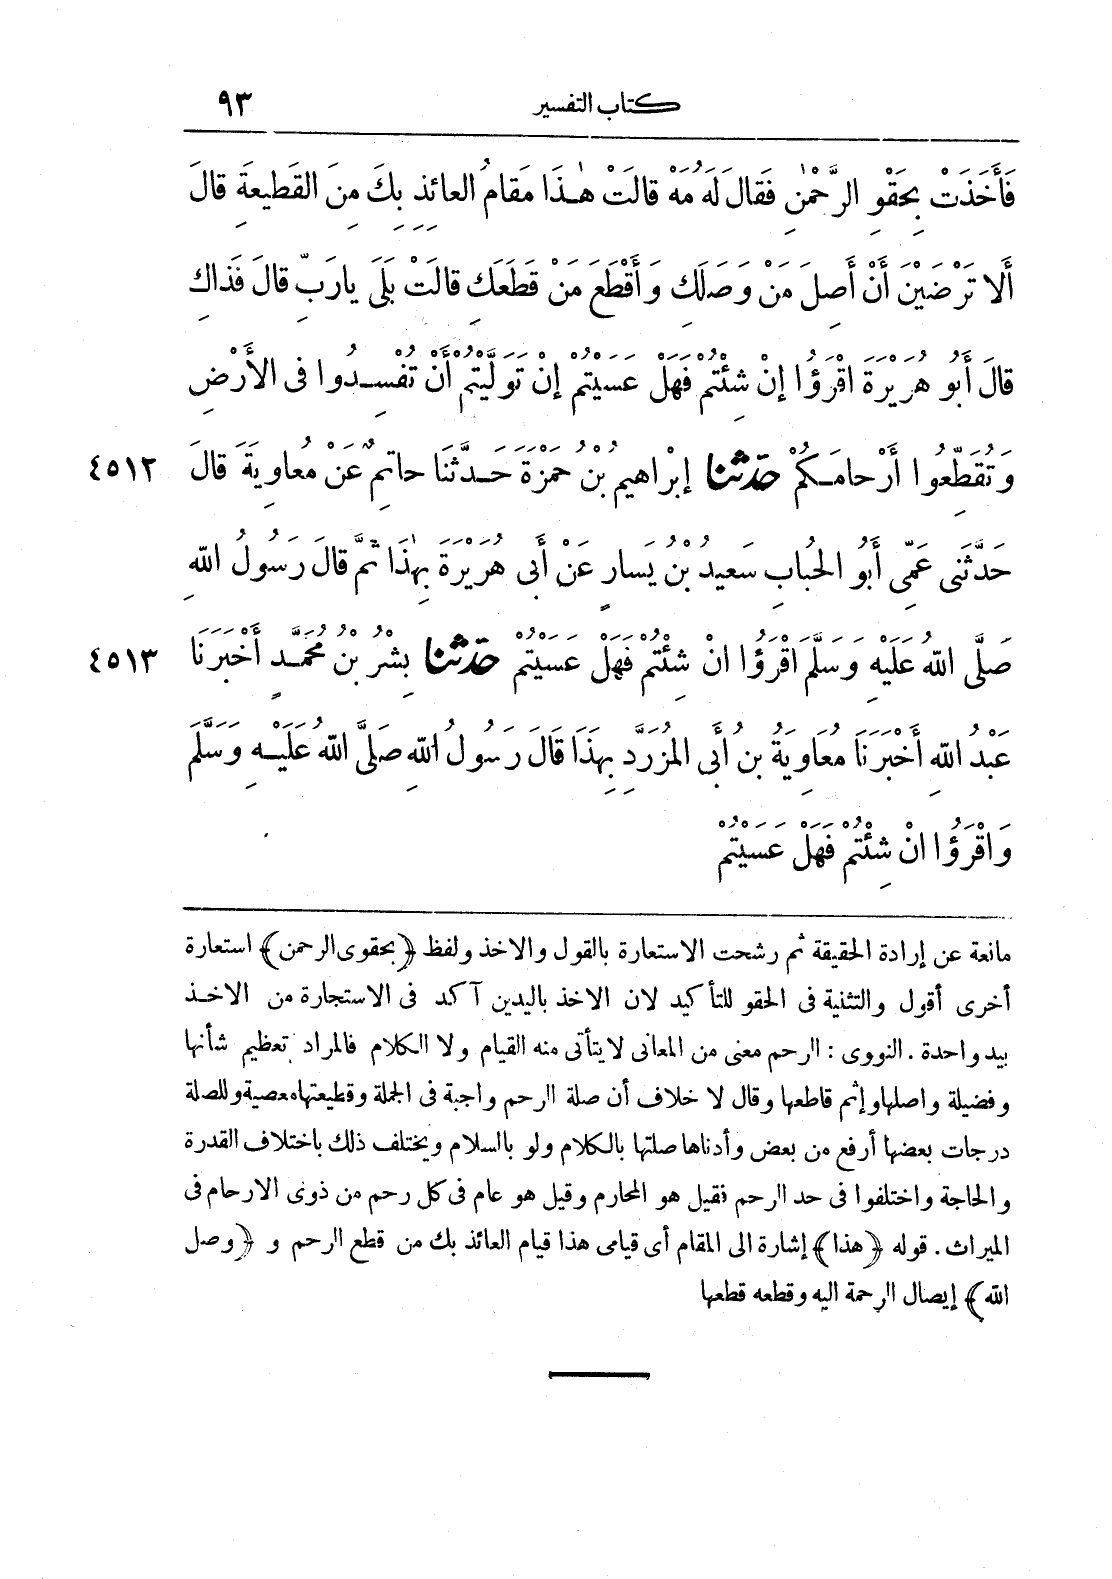 كتاب التفسير ٩٣
فَأَخَذَتْ بِحَقْوِ الرَّحْمٰنِ فَقَالَ لَهُ مَهْ قالَتْ هٰـذَا مَقامُ العائِذِ بِكَ مِنَ القَطِيعَةِ قالَ
أَلا تَرْضَيْنَ أَنْ أَصِلَ مَنْ وَصَلَكِ وَأَقْطَعَ مَنْ قَطَعَكِ قالَتْ بَلَى يارَبِّ قالَ فَذاكِ
قالَ أَبُو هُرَيْرَةَ اقْرَؤُا إِنْ شِئْتُمْ فَهَلْ عَسَيْتُمْ إِنْ تَوَلَّيْتُمْ أَنْ تُفْسِـدُوا فى الأَرْضِ
وَتُقَطِّعُوا أَرْحامَـكُمْ حدّثنا إِبْراهيمُ بْنُ حمزَةَ حَـدَّثَنَا حاتِمٌ عَنْ مُعاوِيَةَ قالَ ٤٥١٢
حَدَّثَنى عَمِّى أَبُو الحُبابِ سَعيدُ بْنُ يَسارٍ عَنْ أَبى هُرَيْرَةَ بِهٰذَا ثُمَّ قالَ رَسُولُ اللّهِ
صَلَّى اللّهُ عَلَيْهِ وَسَلَّمَ اقْرَؤُا انْ شِئْتُمْ فَهَلْ عَسَيْتُمْ حدّثنا بِشْرُ بْنُ مُحَمَّـدٍ أَخْبَرَنَا ٤٥١٣
عَبْدُ اللّهِ أَخْبَرَنَا مُعَاوِيَةُ بنُ أَبى المُزَرَّدِ بِهذَا قَالَ رَسُولُ اللّهِ صَلَّى اللّهُ عَلَيْـهِ وَسَلَّمَ
وَاقْرَؤُا انْ شِئْتُمْ فَهَلْ عَسَيْتُمْ
مانعة عن إرادة الحقيقة ثم رشحت الاستعارة بالقول والاخذ ولفظ ﴿بحقوى الرحمن﴾ استعارة
أخرى أقول والتثنية فى الحقو للتأكيد لان الاخذ باليدين آكد فى الاستجارة من الاخـذ
بيد واحدة . النووى : الرحم معنى من المعانى لا يتأتى منه القيام ولا الكلام فالمراد تعظيم شأنها
وفضيلة واصلها وإثم قاطعها وقال لا خلاف أن صلة الرحم واجبة فى الجملة وقطيعتها معصية وللصلة
درجات بعضها أرفع من بعض وأدناها صلتها بالكلام ولو بالسلام ويختلف ذلك باختلاف القدرة
والحاجة واختلفوا فى حد الرحم فقيل هو المحارم وقيل هو عام فى كل رحم من ذوى الارحام فى
الميراث . قوله ﴿هذا﴾ إشارة الى المقام أى قيامى هذا قيام العائذ بك من قطع الرحم و ﴿وصل
الله﴾ إيصال الرحمة اليه وقطعه قطعها